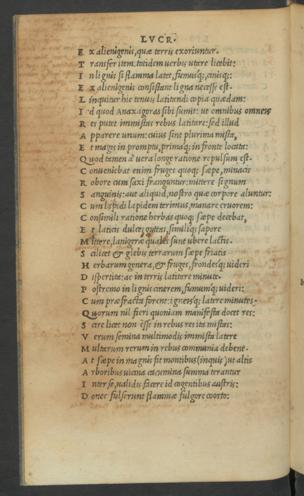 LVCR.
E x alienigenis, quæ terris exoriuntur.
T ransfer item. totidem uerbis utere licebit:
I n lignis si flamma latet, fumusq;, cinisq;:
E x alienigenis consistant ligna necesse est.
L inquitur hic tenuis latitandi copia quædam:
I d quod Anaxagoras sibi sumit: ut omnibus omneis
R es putet immistas rebus latitare: sed illud
A pparere unum: cuius sint plurima mista,
E t magis in promptu, primaq; in fronte locata:
Q uod tamen a' uera longe ratione repulsum est.
C onueniebat enim fruges quoq; sæpe, minacis
R obore cum saxi franguntur: mittere signum
S anguinis: aut aliquid, nostro quæ corpore aluntur:
C um lapidi lapidem terimus, manare cruorem:
C onsimili ratione herbas quoq; sæpe decebat,
E t laticis dulceis guttas, similiq; sapore
M ittere, lanigeræ quales sunt ubere lactis.
S cilicet & glebis terrarum sæpe friatis
H erbarum genera, & fruges, frondesq; uideri
D ispertita: ac in terris latitare minute.
P ostremo in lignis cinerem, fumumq; uideri:
C um præfracta forent: igneisq; latere minutos.
Q uorum nil fieri quoniam manifesta docet res:
S cire licet non esse in rebus res ita mistas:
V erum semina multimodis immista latere
M ultarum rerum in rebus communia debent.
A t sæpe in magnis fit montibus (inquis) ut altis
A rboribus uicina cacumina summa terantur
I nter se, ualidis facere id cogentibus austris:
D onec fulserunt flammæ fulgore coorto: